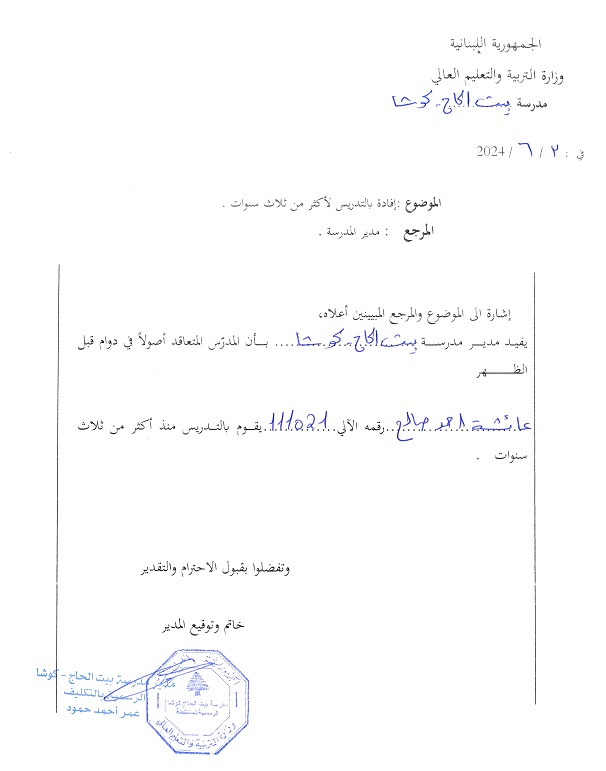 الجمهورية اللبنانية
وزارة التربية والتعليم العالي
مدرسة بيت الحاج - كوشا
في : ٢ / ٦ / 2024
الموضوع : إفادة بالتدريس لأكثر من ثلاث سنوات .
المرجع : مدير المدرسة .
إشارة الى الموضوع والمرجع المبيينين أعلاه،
يفيد مديـر مدرسـة بيت الحاج - كوشا .... بـأن المدرّس المتعاقد أصولاً في دوام قبل
الظـــهر
عائشة احمد صالح رقمه الآلي 111021 يقـوم بالتدريس منذ أكثر من ثلاث
سنوات .
وتفضلوا بقبول الاحترام والتقدير
خاتم وتوقيع المدير
مدير مدرسة بيت الحاج - كوشا
الرسمية بالتكليف
عمر أحمد حمود
مدرسة بيت الحاج كوشا
وزارة التربية والتعليم العالي